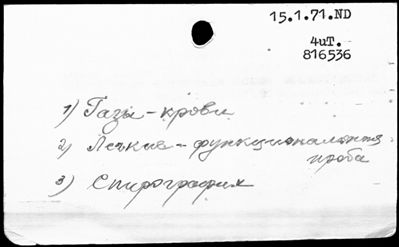 15.1.71.ND
4иТ.
816536
1) Газы - крови
2) Легкие - функциональная
проба
3) Спирография